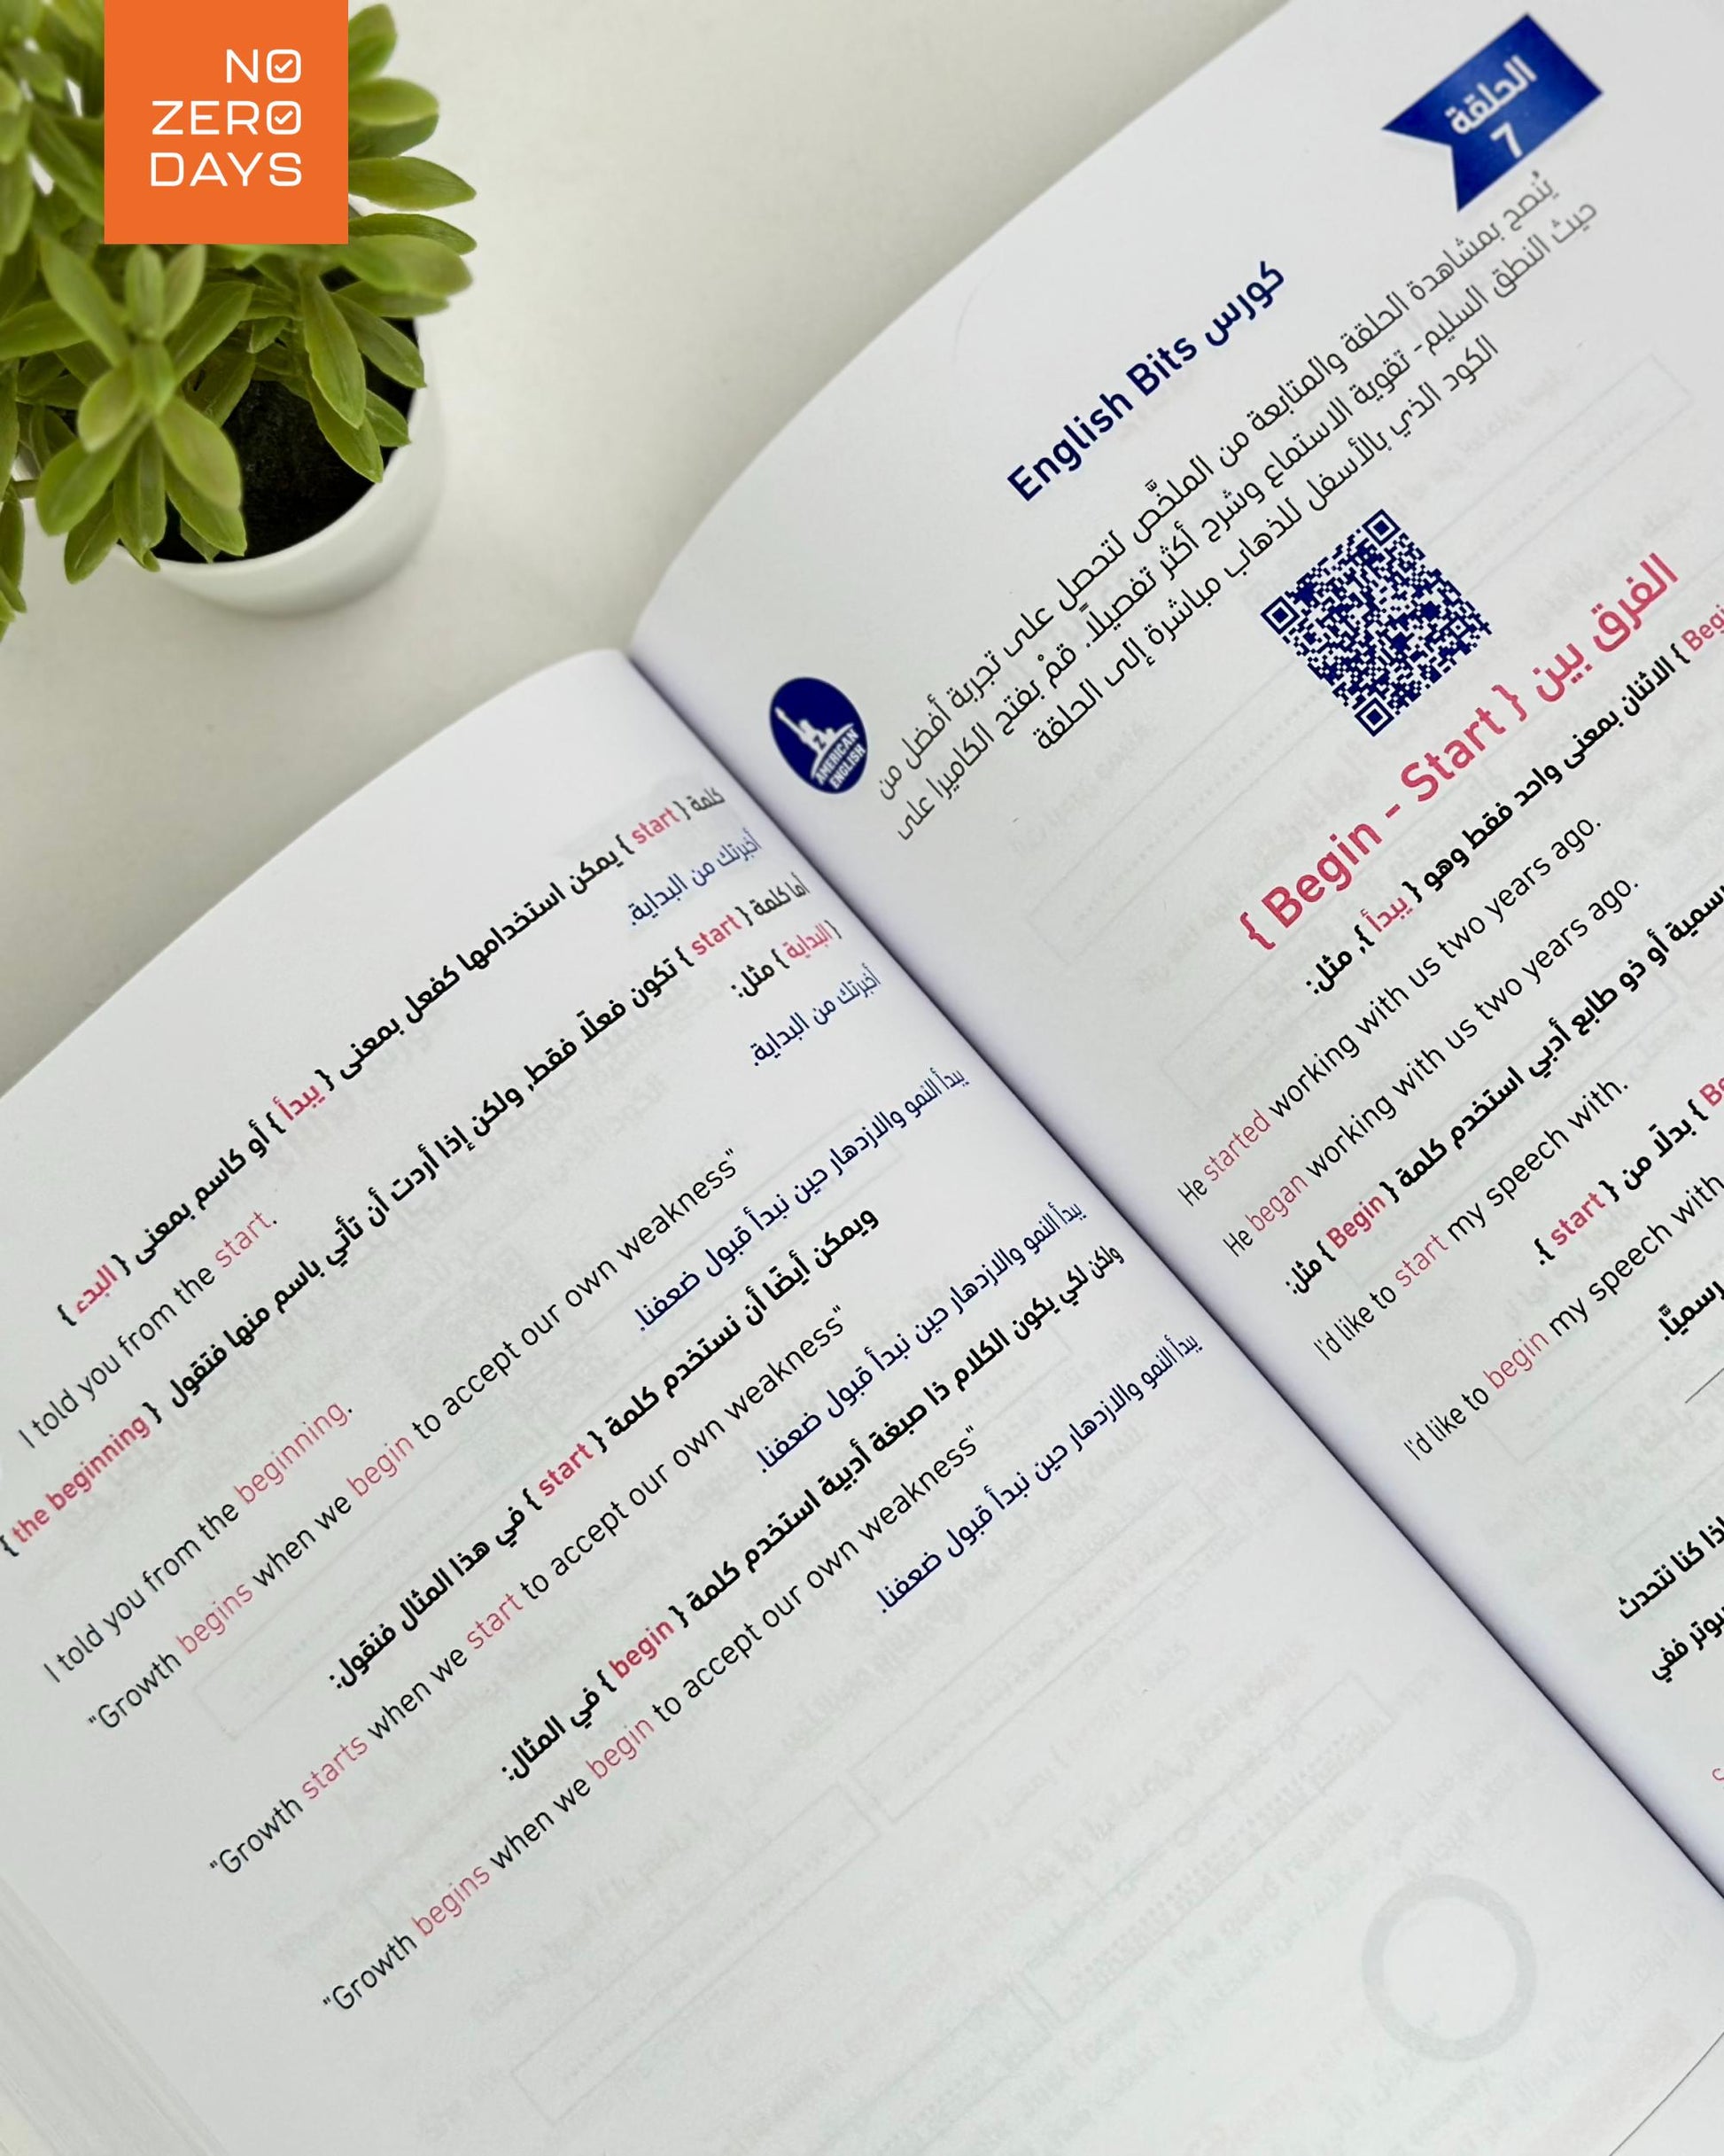 NO
ZERO
DAYS
الحلقة
7
كورس English Bits
يُنصح بمشاهدة الحلقة والمتابعة من الملخَّص لتحصل على تجربة أفضل من
حيث النطق السليم- تقوية الاستماع وشرح أكثر تفصيلًا. قمْ بفتح الكاميرا على
الكود الذي بالأسفل للذهاب مباشرة إلى الحلقة
AMERICAN
ENGLISH
الفرق بين { Begin - Start }
الاثنان بمعنى واحد فقط وهو { يبدأ }, مثل:
He started working with us two years ago.
He began working with us two years ago.
أو ذو طابع أدبي استخدم كلمة { Begin } مثل:
I'd like to start my speech with.
} بدلًا من { start }.
I'd like to begin my speech with
رسميًّا.
إذا كنا نتحدث
ففي
كلمة { start } يمكن استخدامها كفعل بمعنى { يبدأ } أو كاسم بمعنى { البدء }
I told you from the start.
أخبرتك من البداية.
أما كلمة { start } تكون فعلًا فقط, ولكن إذا أردت أن تأتي باسم منها فتقول { the beginning }
{البداية } مثل:
I told you from the beginning.
أخبرتك من البداية.
"Growth begins when we begin to accept our own weakness"
يبدأ النمو والازدهار حين نبدأ قبول ضعفنا.
ويمكن أيضًا أن نستخدم كلمة { start } في هذا المثال فنقول:
"Growth starts when we start to accept our own weakness"
يبدأ النمو والازدهار حين نبدأ قبول ضعفنا.
ولكن لكي يكون الكلام ذا صبغة أدبية استخدم كلمة { begin } في المثال:
"Growth begins when we begin to accept our own weakness"
يبدأ النمو والازدهار حين نبدأ قبول ضعفنا.